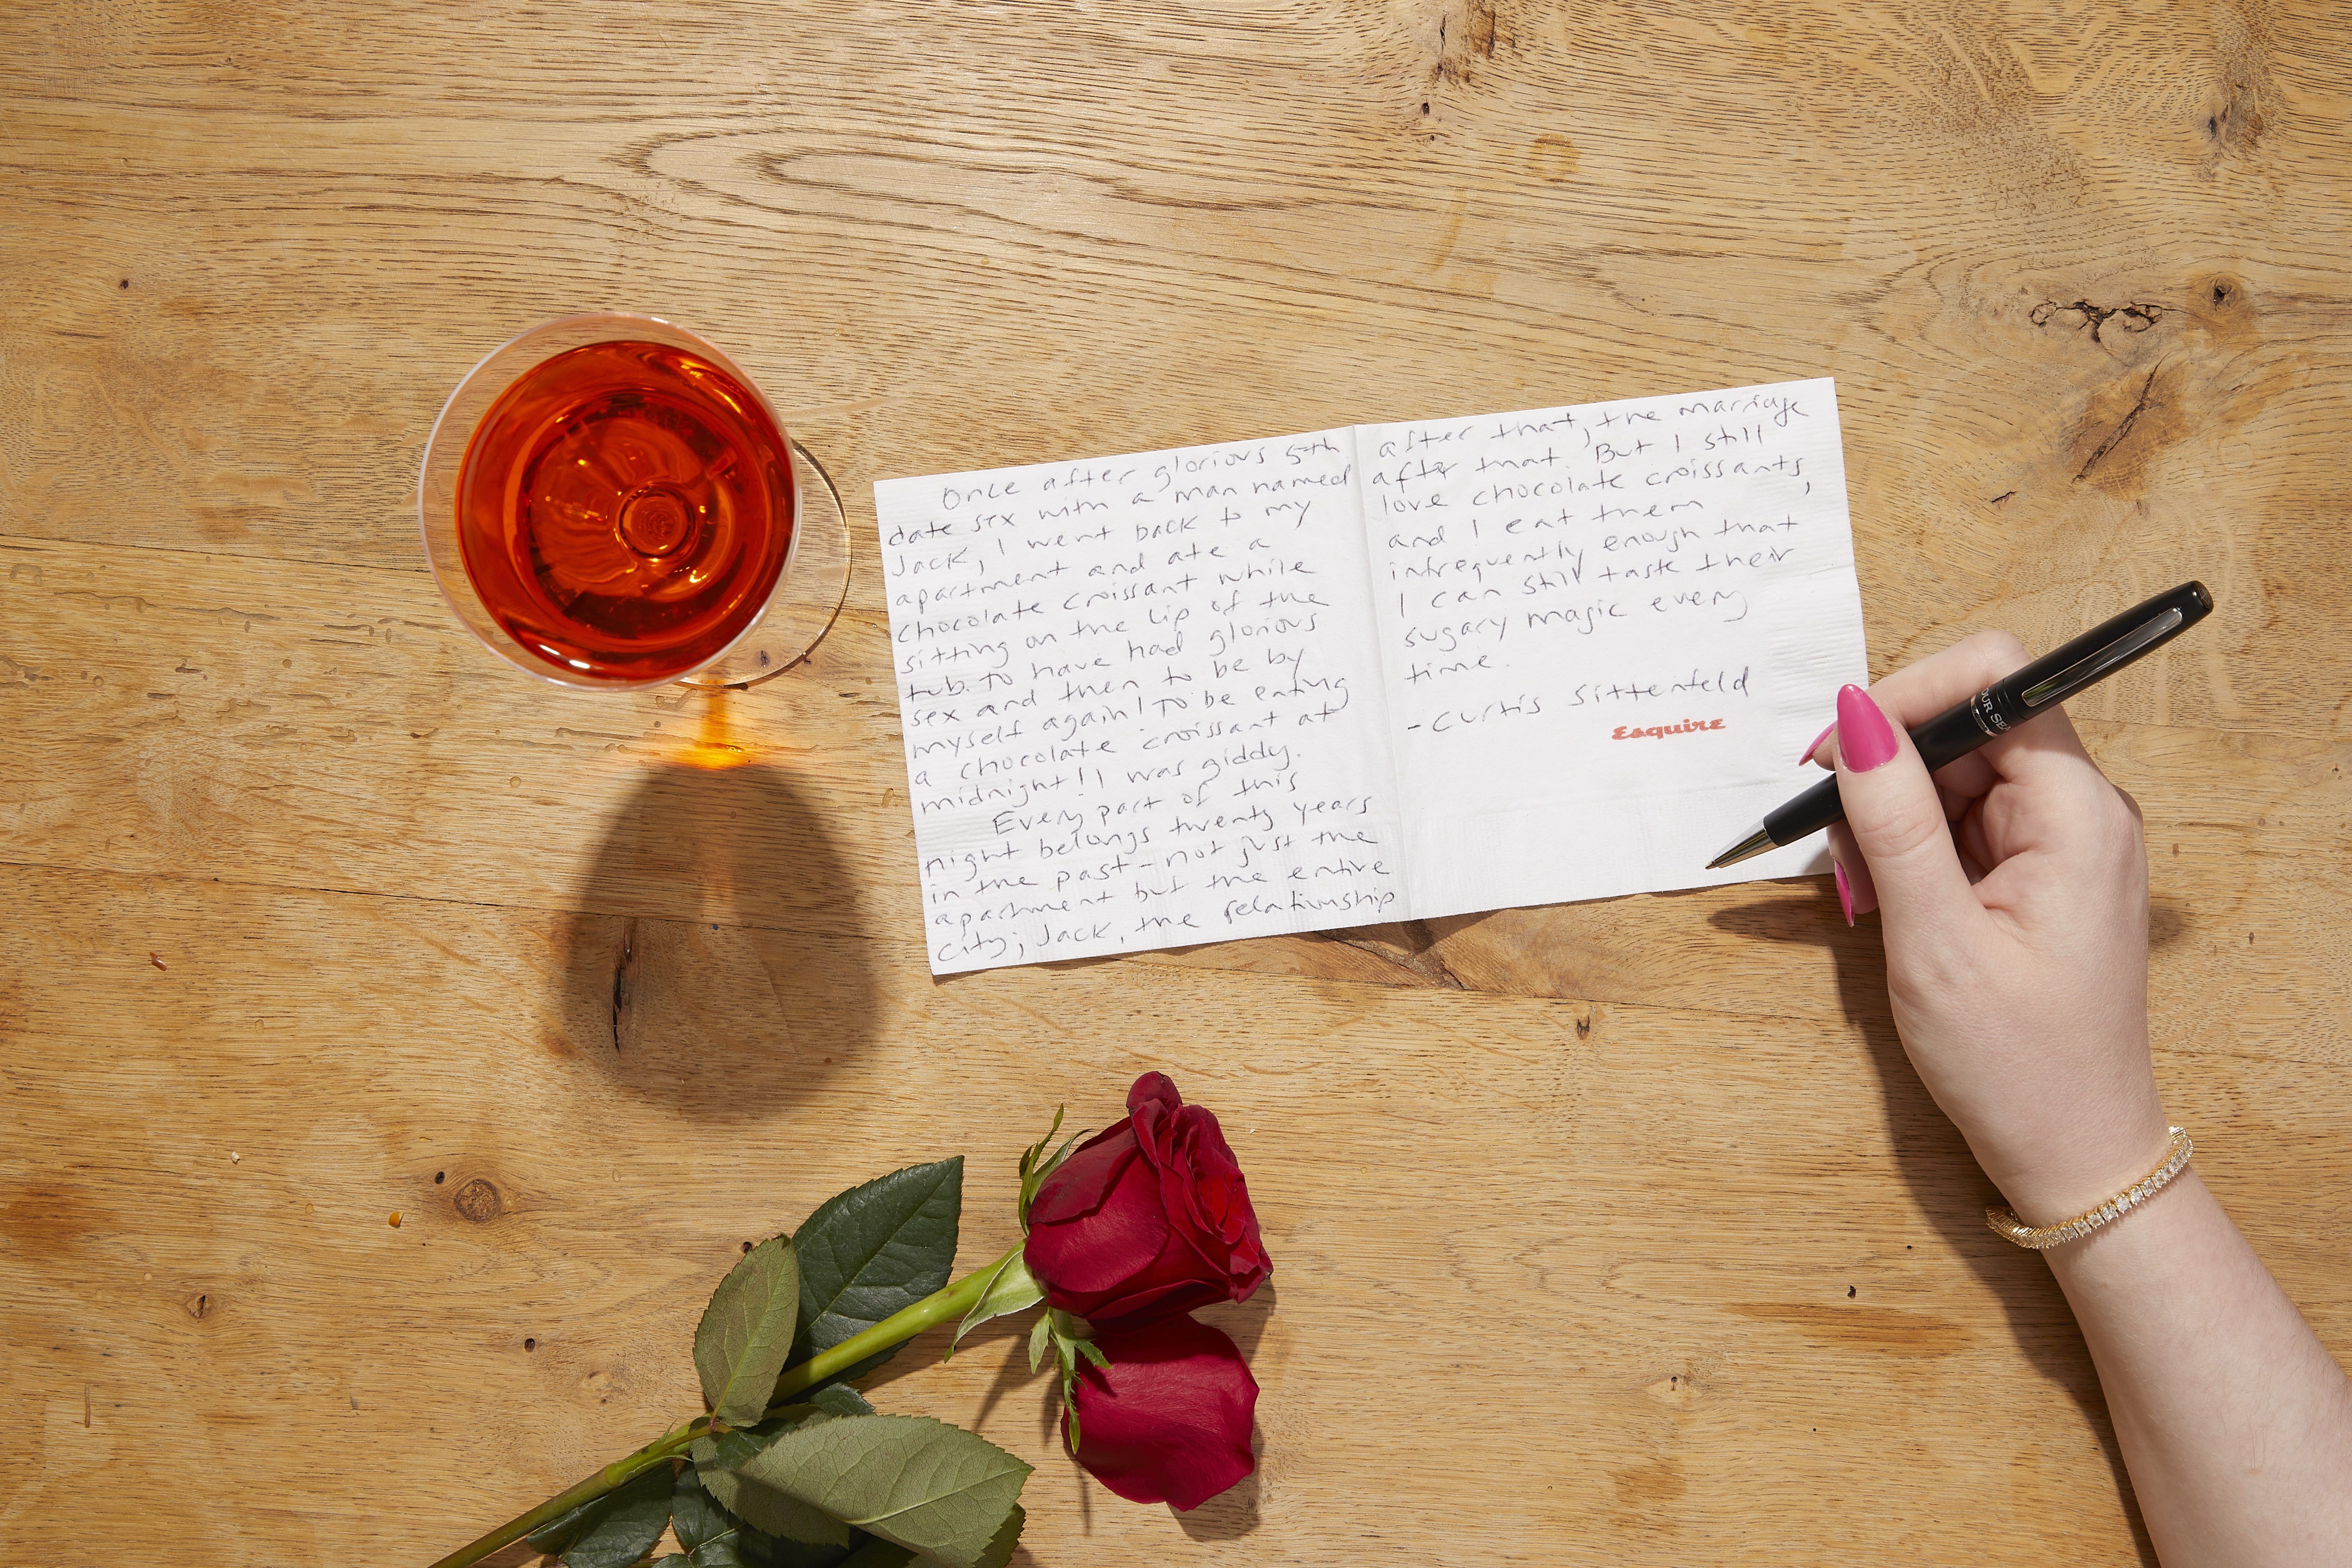 Once after glorious 5th
date sex with a man named
Jack, I went back to my
apartment and ate a
chocolate croissant while
sitting on the lip of the
tub. To have had glorious
sex and then to be by
myself again! To be eating
a chocolate croissant at
midnight! I was giddy.
Every part of this
night belongs twenty years
in the past - not just the
apartment but the entire
city; Jack, the relationship
after that, the marriage
after that. But I still
love chocolate croissants,
and I eat them
infrequently enough that
I can still taste their
sugary magic every
time.
- Curtis Sittenfeld
Esquire